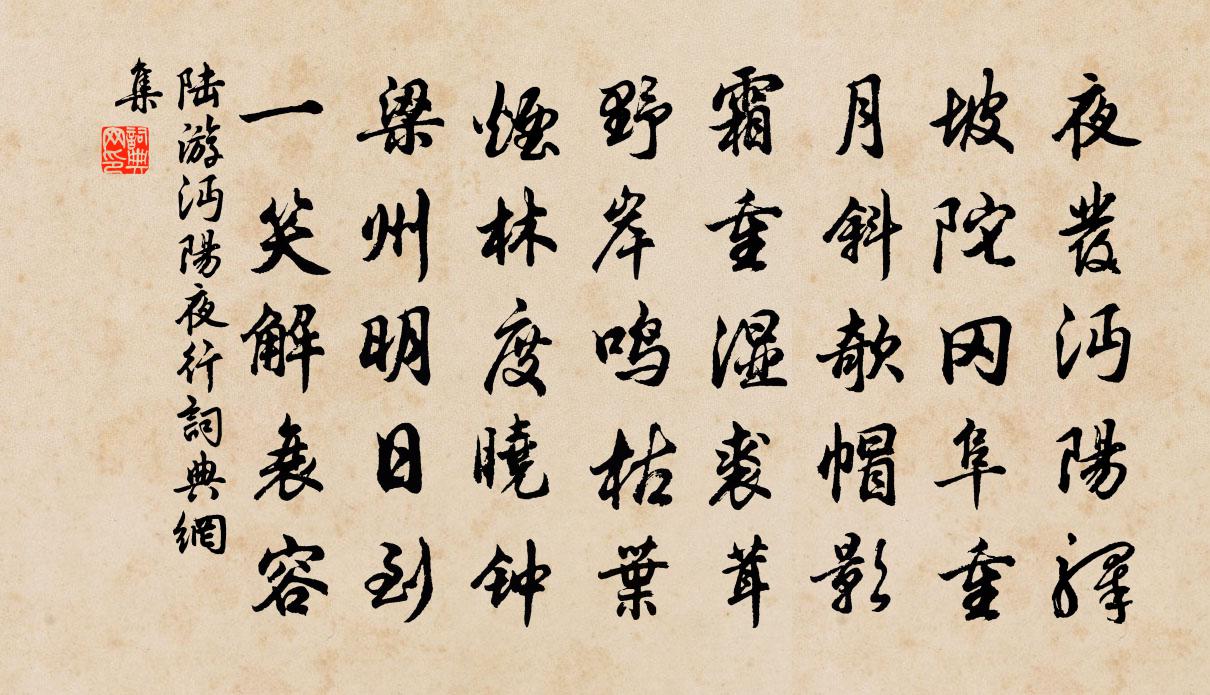 夜發沔陽驛
坡陀冈阜重
月斜欹帽影
霜重濕裘茸
野岸鳴枯葉
煙林度曉钟
梁州明日到
一笑解衰容
陆游沔陽夜行詞典網
集
詞典网印